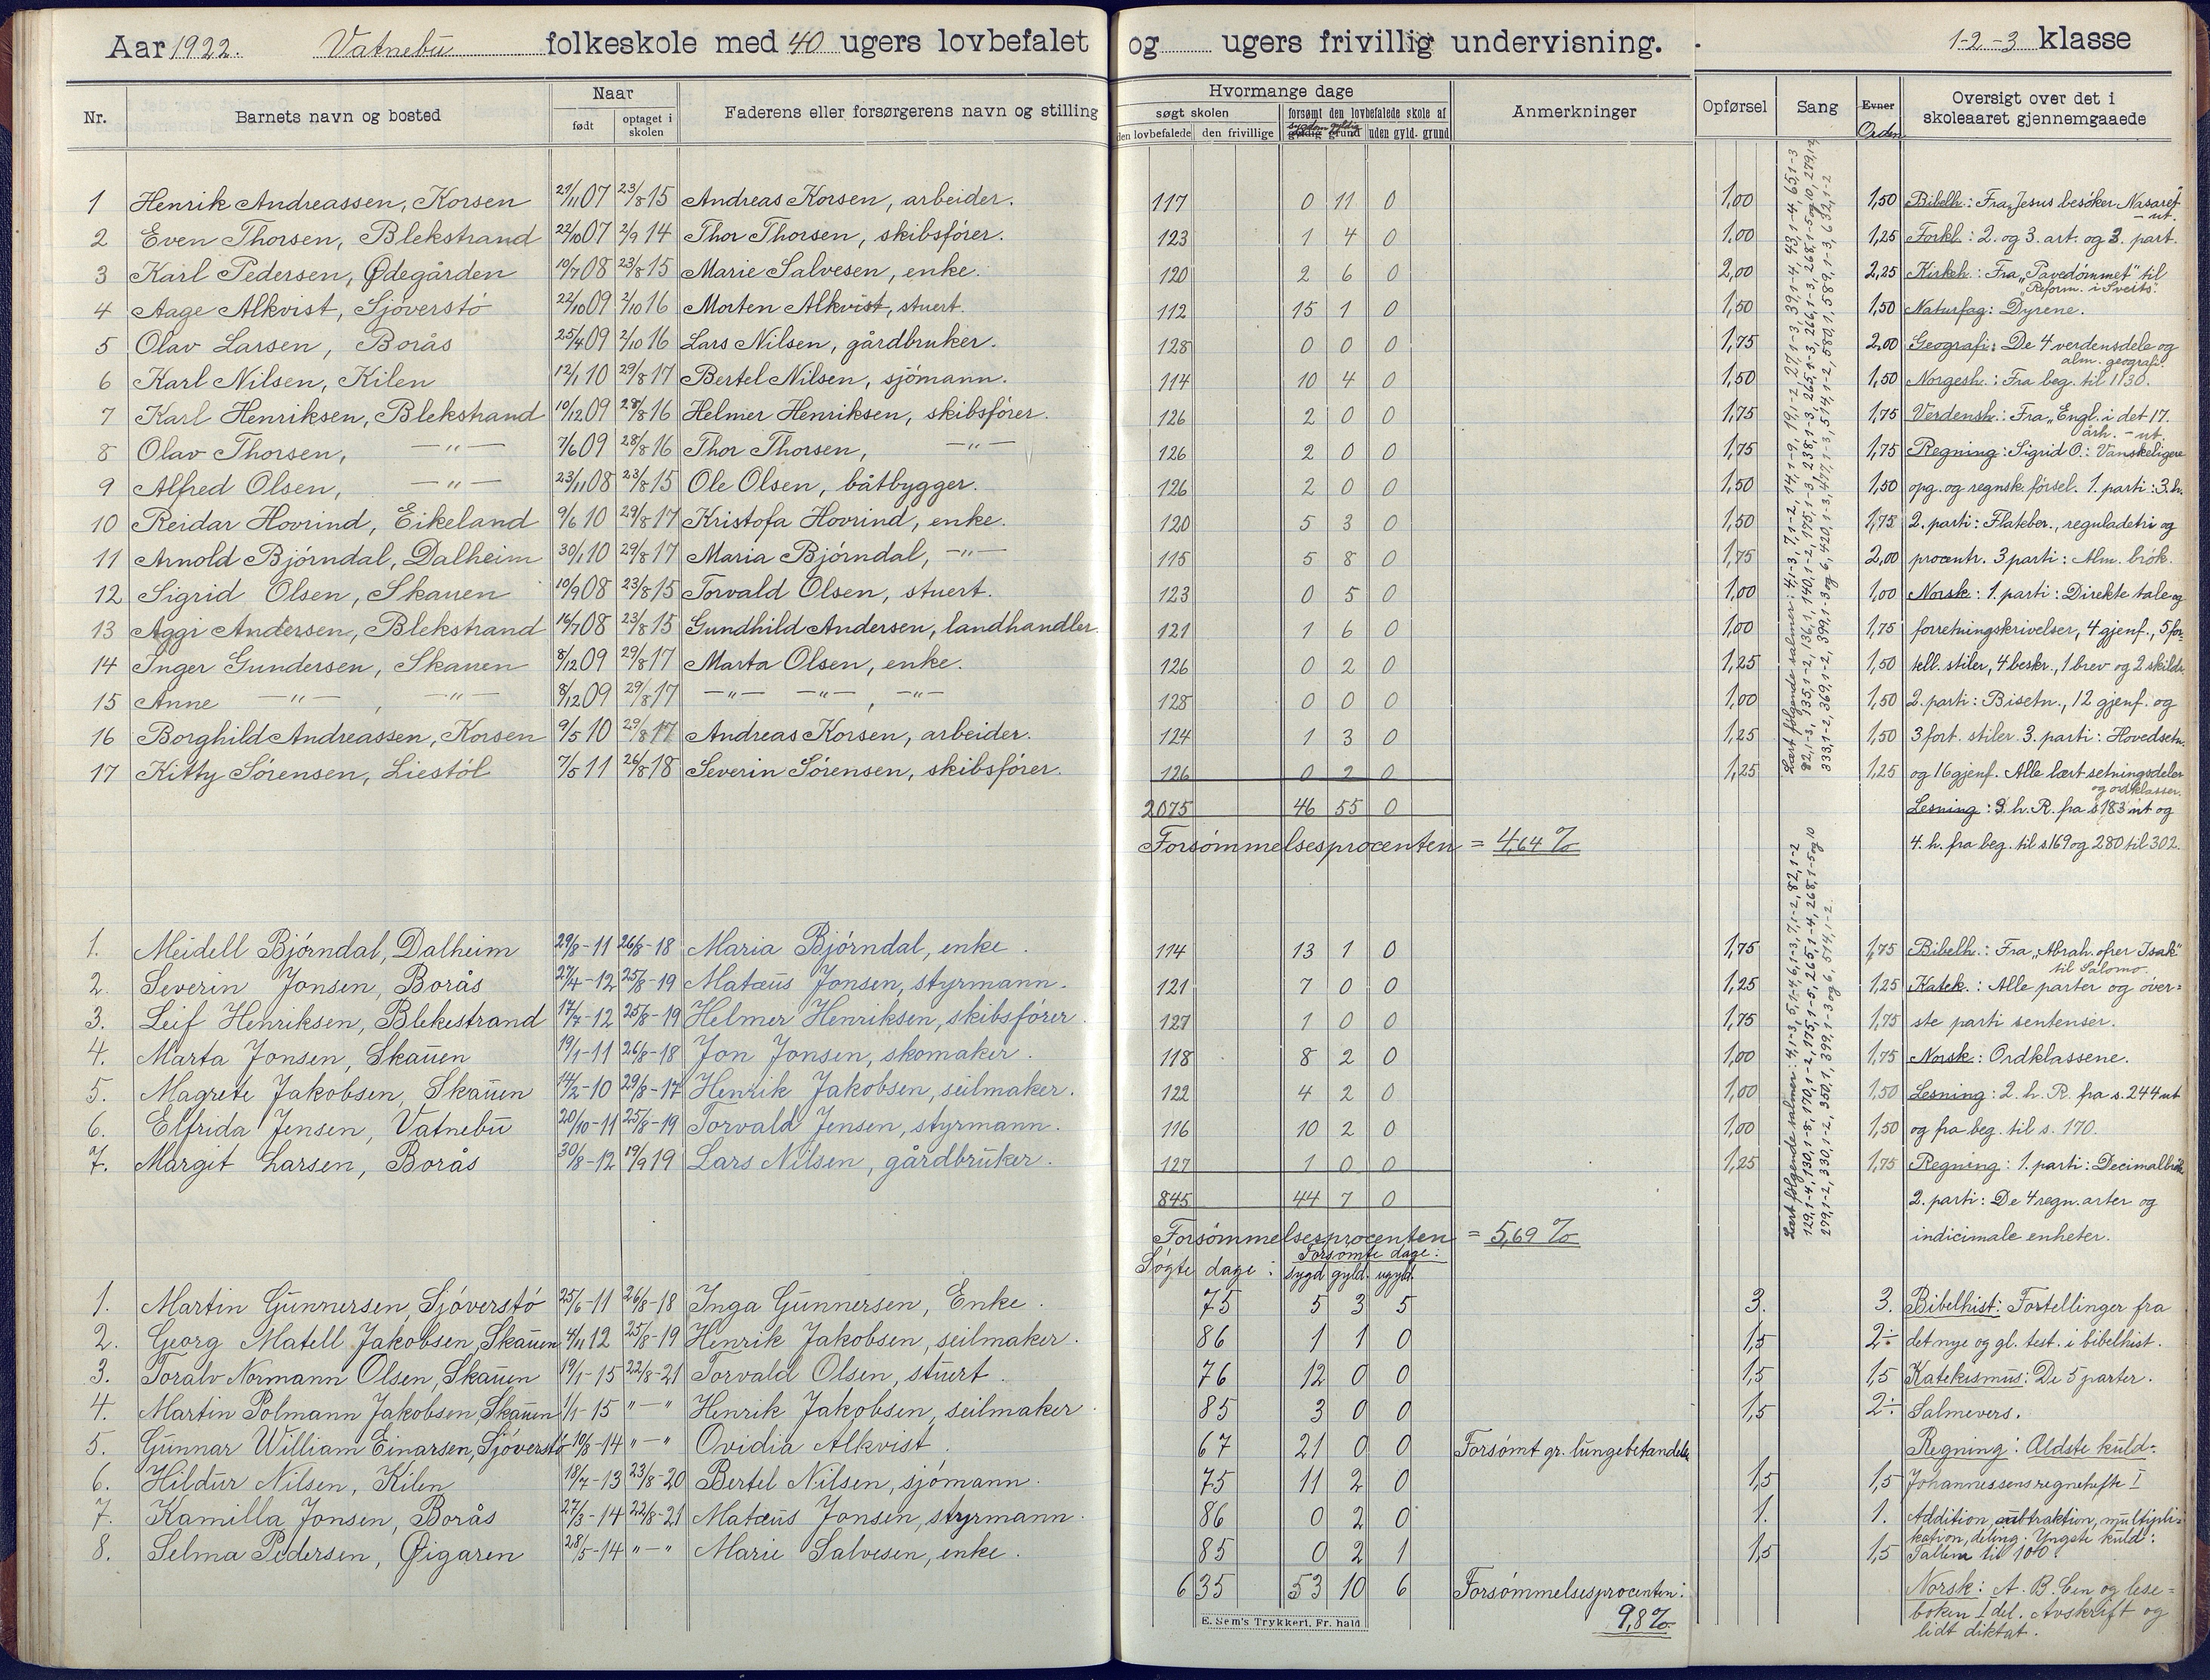 Aar 1922. Vatnebu folkeskole med 40 ugers lovbefalet og ugers frivillig undervisning. 1-2-3 klasse
Nr. Barnets navn og bosted Naar født optaget i skolen Faderens eller forsørgerens navn og stilling Hvormange dage søgt skolen den lovbefalede den frivillige forsømt den lovbefalede skole af sygdom gyldig gyldig grund uden gyld. grund Anmerkninger Opførsel Sang Evner Orden Oversigt over det i skoleaaret gjennemgaaede
1 Henrik Andreassen, Korsen 21/11 07 23/8 15 Andreas Korsen, arbeider. 117 0 11 0 1,00 1,50 Bibelh.: Fra "Jesus besøker Nasaret" - ut.
2 Even Thorsen, Blekstrand 22/10 07 2/9 14 Thor Thorsen, skibsfører. 123 1 4 0 1.00 1,25 Forkl.: 2. og 3. art. og 3. part.
3 Karl Pedersen, Ødegården 10/7 08 23/8 15 Marie Salvesen, enke. 120 2 6 0 2,00 2,25 Kirkeh.: Fra "Pavedømmet" til "Reform. i Sveits".
4 Aage Alkvist, Sjöverstö 22/10 09 2/10 16 Morten Alkvist, stuert. 112 15 1 0 1,50 1,50 Naturfag: Dyrene.
5 Olav Larsen, Borås 25/4 09 2/10 16 Lars Nilsen, gårdbruker. 128 0 0 0 1,75 2.00 Geografi: De 4 verdensdele og alm. geografi.
6 Karl Nilsen, Kilen 12/1 10 29/8 17 Bertel Nilsen, sjömann. 114 10 4 0 1,50 1,50 Norgesh.: Fra beg. til 1130.
7 Karl Henriksen, Blekstrand 10/12 09 28/8 16 Helmer Henriksen, skibsfører. 126 2 0 0 1,75 1,75 Verdensh.: Fra "Engl. i det 17. årh. - ut.
8 Olav Thorsen, —"— 7/6 09 28/8 16 Thor Thorsen, —"— 126 2 0 0 1,75 1,75 Regning: Sigrid O.: Vanskeligere
9 Alfred Olsen, —"— 23/11 08 23/8 15 Ole Olsen, båtbygger. 126 2 0 0 1,50 1,50 opg. og regnsk. førsel. 1. parti: 3. h.
10 Reidar Hovrind, Eikeland 9/6 10 29/8 17 Kristofa Hovrind, enke. 120 5 3 0 1,50 1,75 2. parti: Flateber., reguladetri og
11 Arnold Bjørndal, Dalheim 30/1 10 29/8 17 Maria Bjørndal, —"— 115 5 8 0 1,75 2,00 procentr. 3 parti: Alm. brøk.
12 Sigrid Olsen, Skauen 10/9 08 23/8 15 Torvald Olsen, stuert. 123 0 5 0 1,00 1,00 Norsk: 1. parti: Direkte tale og
13 Aggi Andersen, Blekstrand 16/7 08 23/8 15 Gundhild Andersen, landhandler. 121 1 6 0 1,00 1,75 forretningskrivelser, 4 gjenf., 5 for-
14 Inger Gundersen, Skauen 8/12 09 29/8 17 Marta Olsen, enke. 126 0 2 0 1,25 1,50 tell. stiler, 4 beskr., 1 brev og 2 skildr.
15 Anne —"—, —"— 8/12 09 29/8 17 —"— —"—, —"— 128 0 0 0 1,00 1,50 2. parti: Bisetn., 12 gjenf. og
16 Borghild Andreassen, Korsen 9/5 10 29/8 17 Andreas Korsen, arbeider. 124 1 3 0 1,25 1,50 3 fort. stiler. 3. parti: Hovedsetn.
17 Kitty Sørensen, Liestøl 7/5 11 26/8 18 Severin Sørensen, skibsfører. 126 0 2 0 1,25 1,25 og 16 gjenf. Alle lært setningsdeler og ordklasser.
2075 46 55 0 Lesning: 3. h. R. fra s. 183 ut og
Forsømmelsesprocenten = 4,64 % 4. h. fra beg. til s. 169 og 280 til 302.
Lært følgende salmer:
1. Meidell Bjørndal, Dalheim 29/8-11 26/8-18 Maria Bjørndal, enke. 114 13 1 0 1,75 1,75 Bibelh.: Fra "Abrah. ofrer Isak" til Salomo.
2. Severin Jonsen, Borås 27/4-12 25/8-19 Matæus Jonsen, styrmann. 121 7 0 0 1,25 1,25 Katek.: Alle parter og över-
3. Leif Henriksen, Blekestrand 17/7-12 25/8-19 Helmer Henriksen, skibsfører. 127 1 0 0 1,75 1,75 ste parti sentenser.
4. Marta Jonsen, Skauen 19/1-11 26/8-18 Jon Jonsen, skomaker. 118 8 2 0 1,00 1,75 Norsk: Ordklassene.
5. Magrete Jakobsen, Skauen 14/2-10 29/8-17 Henrik Jakobsen, seilmaker. 122 4 2 0 1,00 1,50 Lesning: 2. h. R. fra s. 244 ut
6. Elfrida Jensen, Vatnebu 20/10-11 25/8-19 Torvald Jensen, styrmann. 116 10 2 0 1,00 1,50 og fra beg. til s. 170.
7. Margit Larsen, Borås 30/8-12 19/9 19 Lars Nilsen, gårdbruker. 127 1 0 0 1,25 1,75 Regning: 1. parti: Decimalbrøk
845 44 7 0 2. parti: De 4 regn. arter og
Forsømmelsesprocenten = 5,69 % indicimale enheter.
Lært følgende salmer:
Søgte dage: Forsømte dage: sygd. gyld. ugyld.
1. Martin Gunnersen, Sjöverstö 25/6-11 26/8-18 Inga Gunnersen, Enke. 75 5 3 5 3. 3. Bibelhist: Fortellinger fra
2. Georg Matell Jakobsen, Skauen 4/11 12 25/8-19 Henrik Jakobsen, seilmaker. 86 1 1 0 1,5 2÷ det nye og gl. test. i bibelhist.
3. Toralv Normann Olsen, Skauen 19/1-15 22/8-21 Torvald Olsen, stuert. 76 12 0 0 1,5 1,5 Katekismus: De 5 parter.
4. Martin Polmann Jakobsen, Skauen 1/1-15 "—" Henrik Jakobsen, seilmaker. 85 3 0 0 1,5 2÷ Salmevers.
5. Gunnar William Einarsen, Sjöverstö 10/8-14 "—" Ovidia Alkvist. 67 21 0 0 Forsømt gr. lungebetændelse Regning: Ældste kuld:
6. Hildur Nilsen, Kilen 18/7-13 23/8-20 Bertel Nilsen, sjømann. 75 11 2 0 1,5 1,5 Johannessens regnehefte I
7. Kamilla Jonsen, Borås 27/3-14 22/8-21 Matæus Jonsen, styrmann. 86 0 2 0 1. 1. Addition, subtraktion, multipli-
kation, deling. Yngste kuld:
8. Selma Pedersen, Øigaren 28/5-14 "—" Marie Salvesen, enke. 85 0 2 1 1,5 1,5 Tallene til 100.
635 53 10 6 Forsømmelsesprocenten: 9,8% Norsk: A. B. C en og lese-
boken I del. Avskrift og
lidt diktat.
E. Sem's Trykkeri, Fr. hald